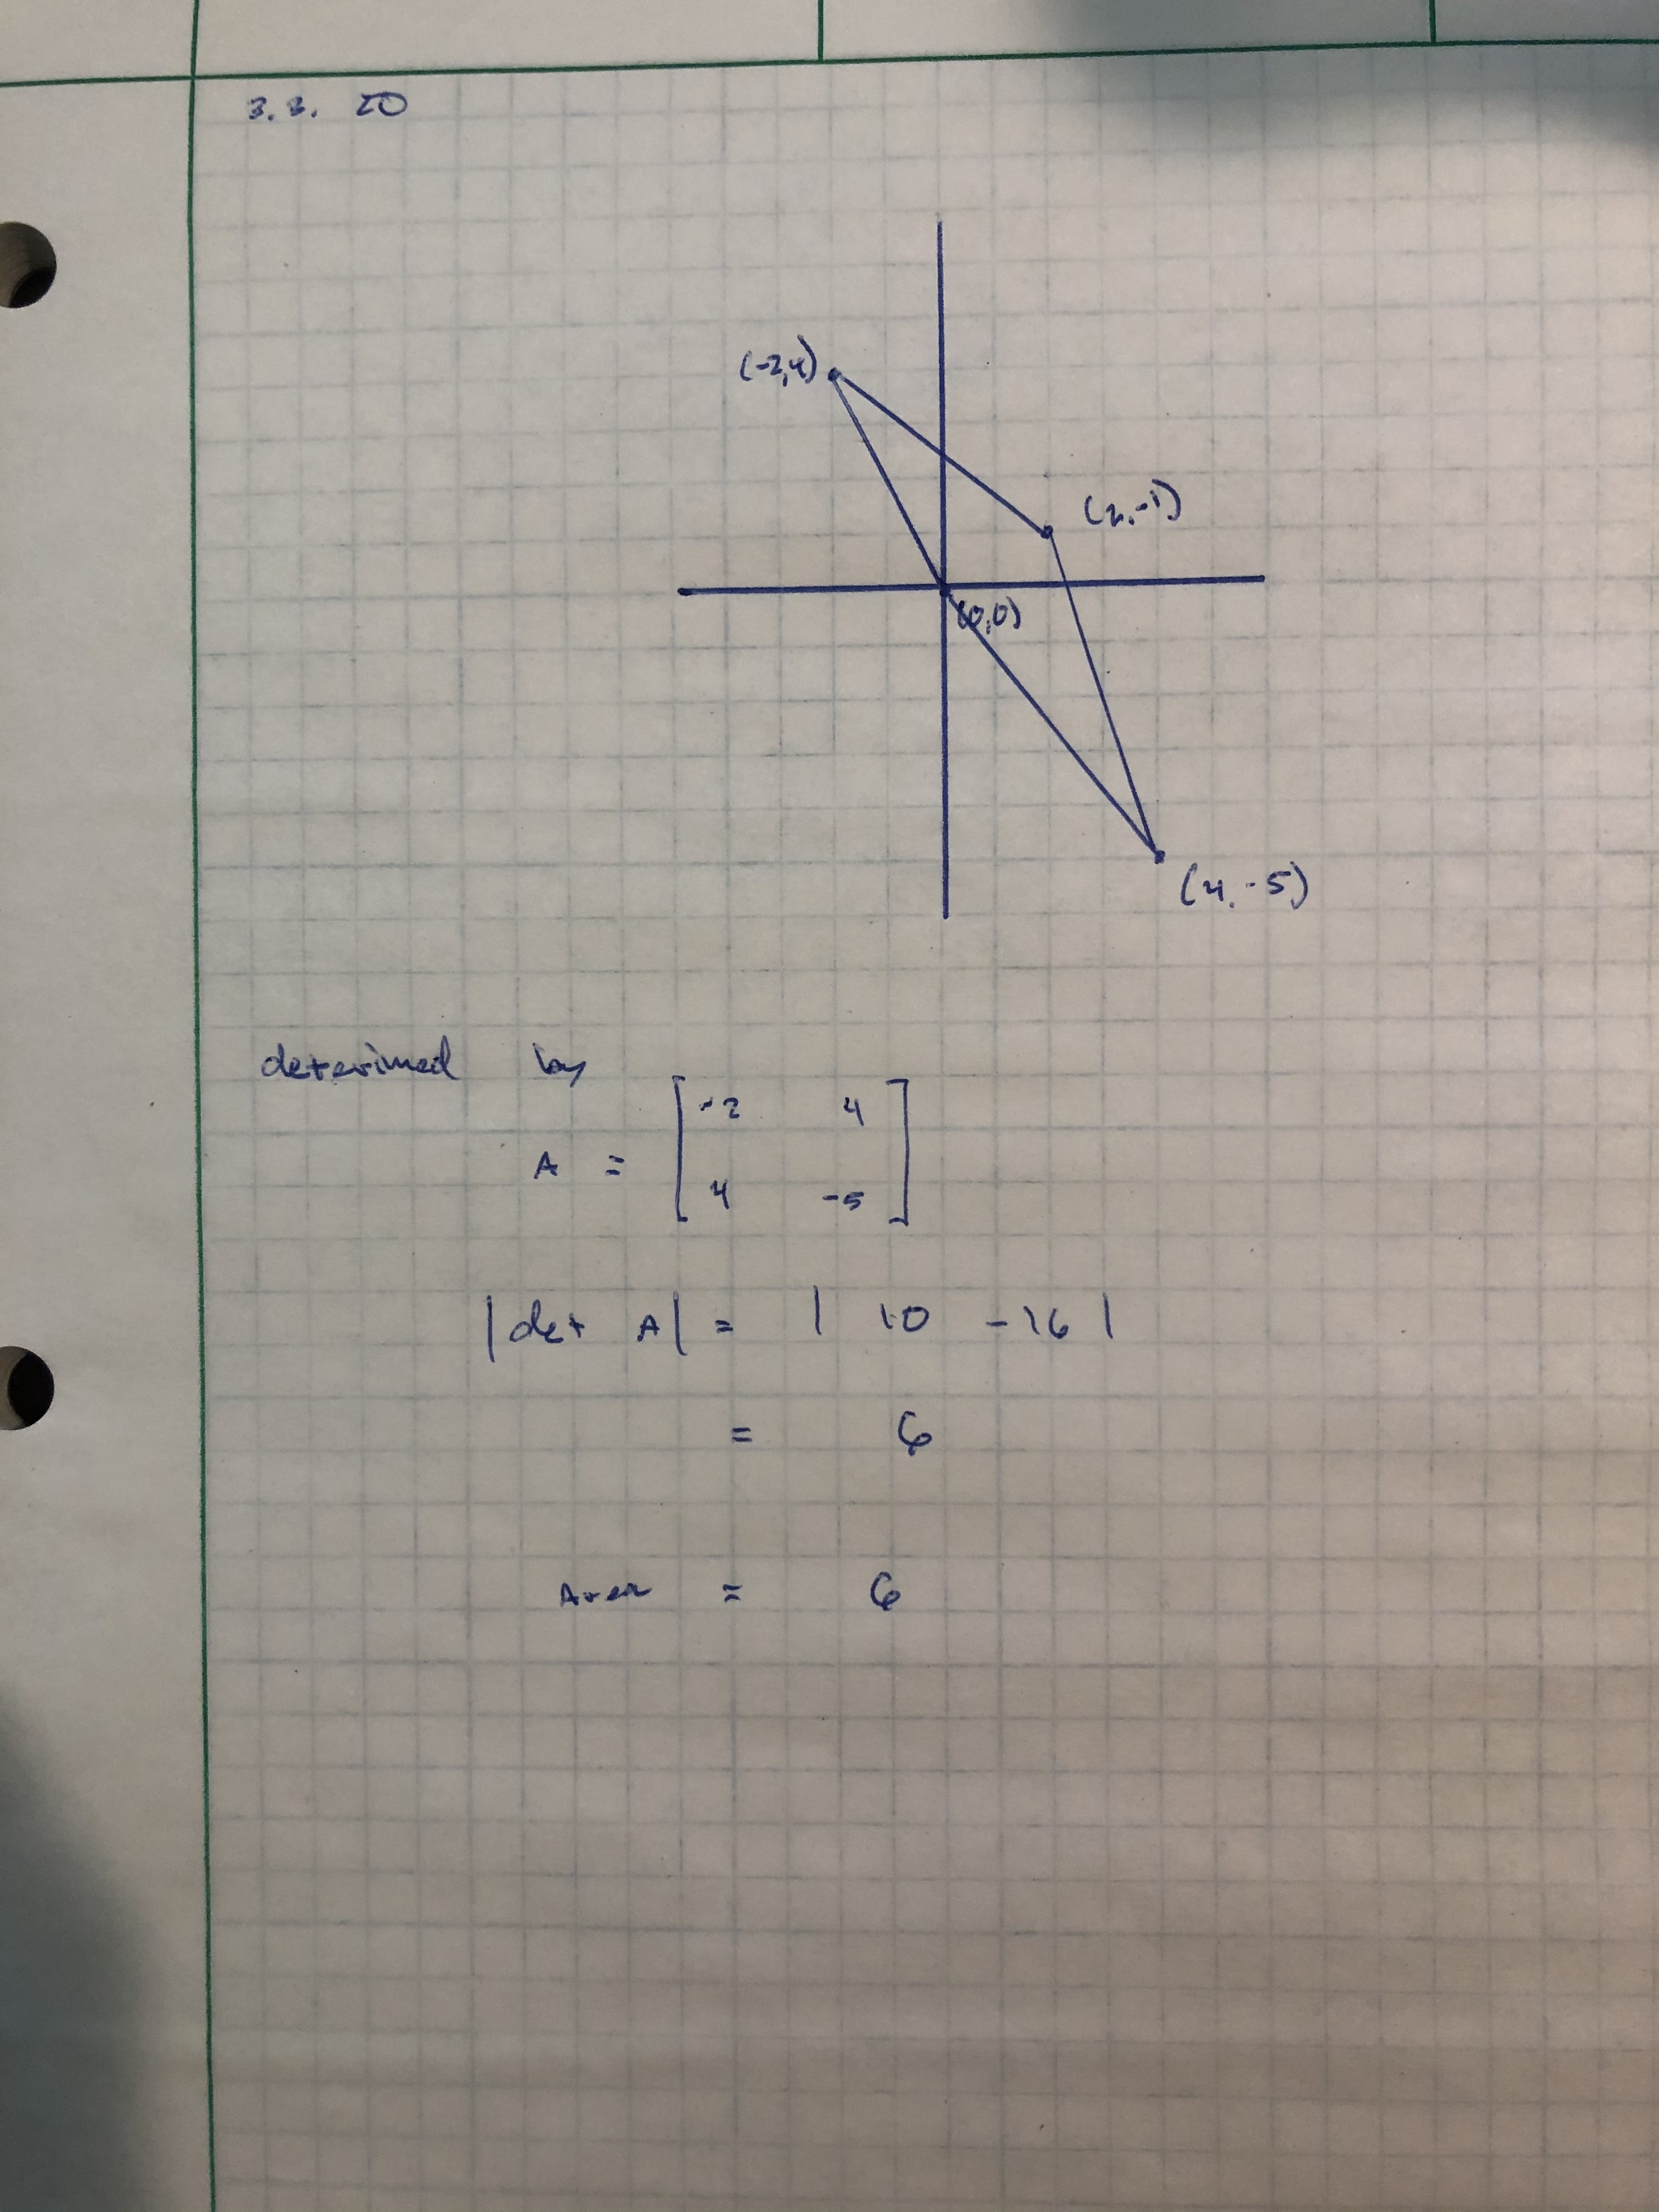 3.3. 20
(-2,4)
(2,-1)
(0,0)
(4,-5)
deterimed by
A = [ -2 4
4 -5 ]
|det A| = | 10 -16 |
= 6
Area = 6